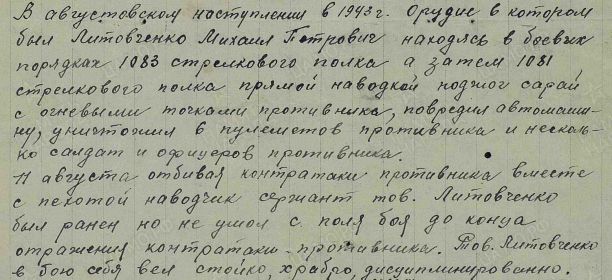 В августовском наступлении в 1943 г. Орудие в котором
был Литовченко Михаил Петрович находясь в боевых
порядках 1083 стрелкового полка а затем 1081
стрелкового полка прямой наводкой поджог сарай
с огневыми точками противника, повредил автомаши-
ну, уничтожил 8 пулеметов противника и несколь-
ко солдат и офицеров противника.
11 августа отбивая контратаки противника вместе
с пехотой наводчик сержант тов. Литовченко
был ранен но не ушол с поля боя до конца
отражения контратаки противника. Тов. Литовченко
в бою себя вел стойко, храбро, дисциплинированно.